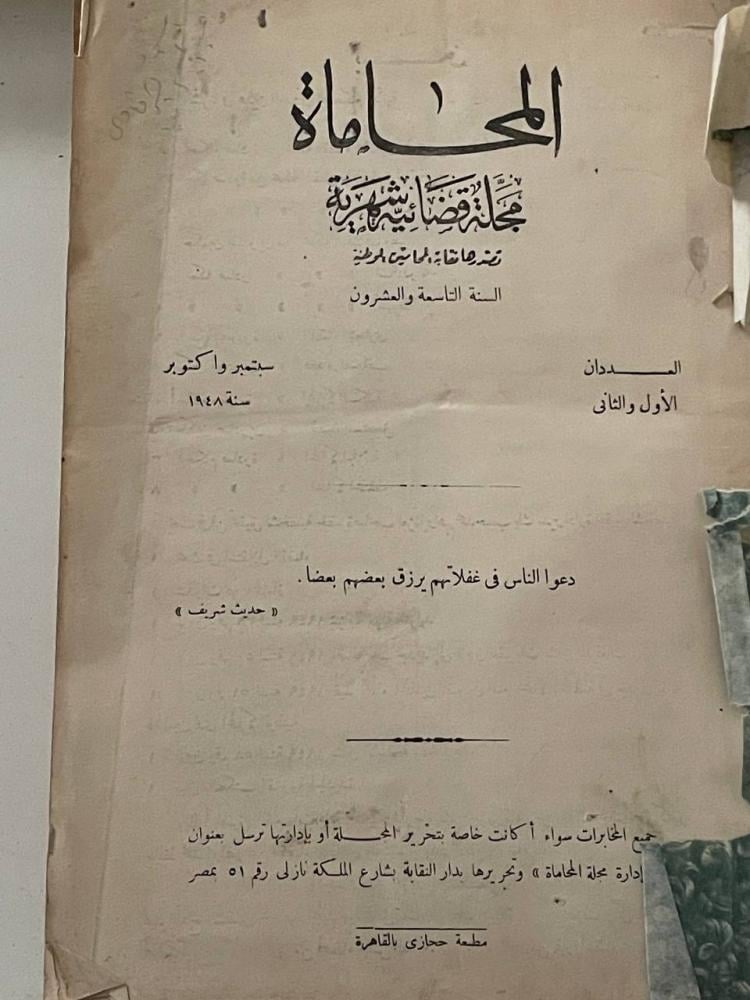 المحاماة
مجلة قضائية شهرية
تصدرها نقابة المحامين الوطنية
السنة التاسعة والعشرون
العـــددان
سبتمبر واكتوبر
الأول والثانى
سنة ١٩٤٨
دعوا الناس فى غفلاتهم يرزق بعضهم بعضا .
« حديث شريف »
جميع المخابرات سواء أكانت خاصة بتحرير المجـــلة أو بإدارتها ترسل بعنوان
إدارة مجلة المحاماة » وتحريرها بدار النقابة بشارع الملكة نازلى رقم ٥١ بمصر
مطبعة حجازى بالقاهرة